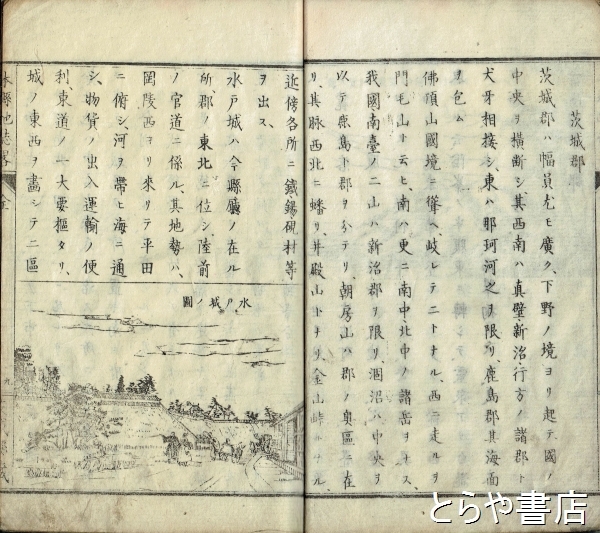 茨城郡
茨城郡ハ幅員尤モ廣ク、下野ノ境ヨリ起テ國ノ
中央ヲ橫斷シ其西南ハ真壁、新治、行方ノ諸郡ト
犬牙相接シ、東ハ那珂河之ヲ限リ、鹿島郡其海面
ヲ包ム
佛頂山國境ニ聳ヘ、岐レテ二トナル、西ニ走ルヲ
門毛山ト云ヒ、南ハ更ニ南中北中ノ諸岳ヲナス、
我國南臺ノ二山ハ新治郡ヲ限リ涸沼ハ中央ヲ
以テ鹿島ト郡ヲ分テリ、朝房山ハ郡ノ奥區ニ在
リ、其脈西北ニ蟠リ、井殿山トナリ、金山峠トナル、
近傍各所ニ鐵錫硯材等
ヲ出ス、
水戸城ハ今縣廳ノ在ル
所、郡ノ東北ニ位シ、陸前
ノ官道ニ係ル、其地勢ハ、
岡陵西ヨリ來リテ平田
ニ俯シ、河ヲ帶ヒ海ニ通
シ、物貨ノ出入運輸ノ便
利、東道ノ一大要樞タリ、
城ノ東西ヲ畫シテ二區
水戸城ノ圖
縣地誌畧
九
とらや書店